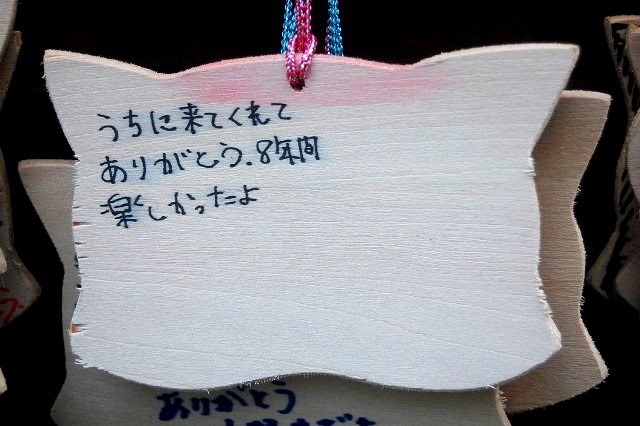 うちに来てくれて
ありがとう.8年間
楽しかったよ
ありがとう